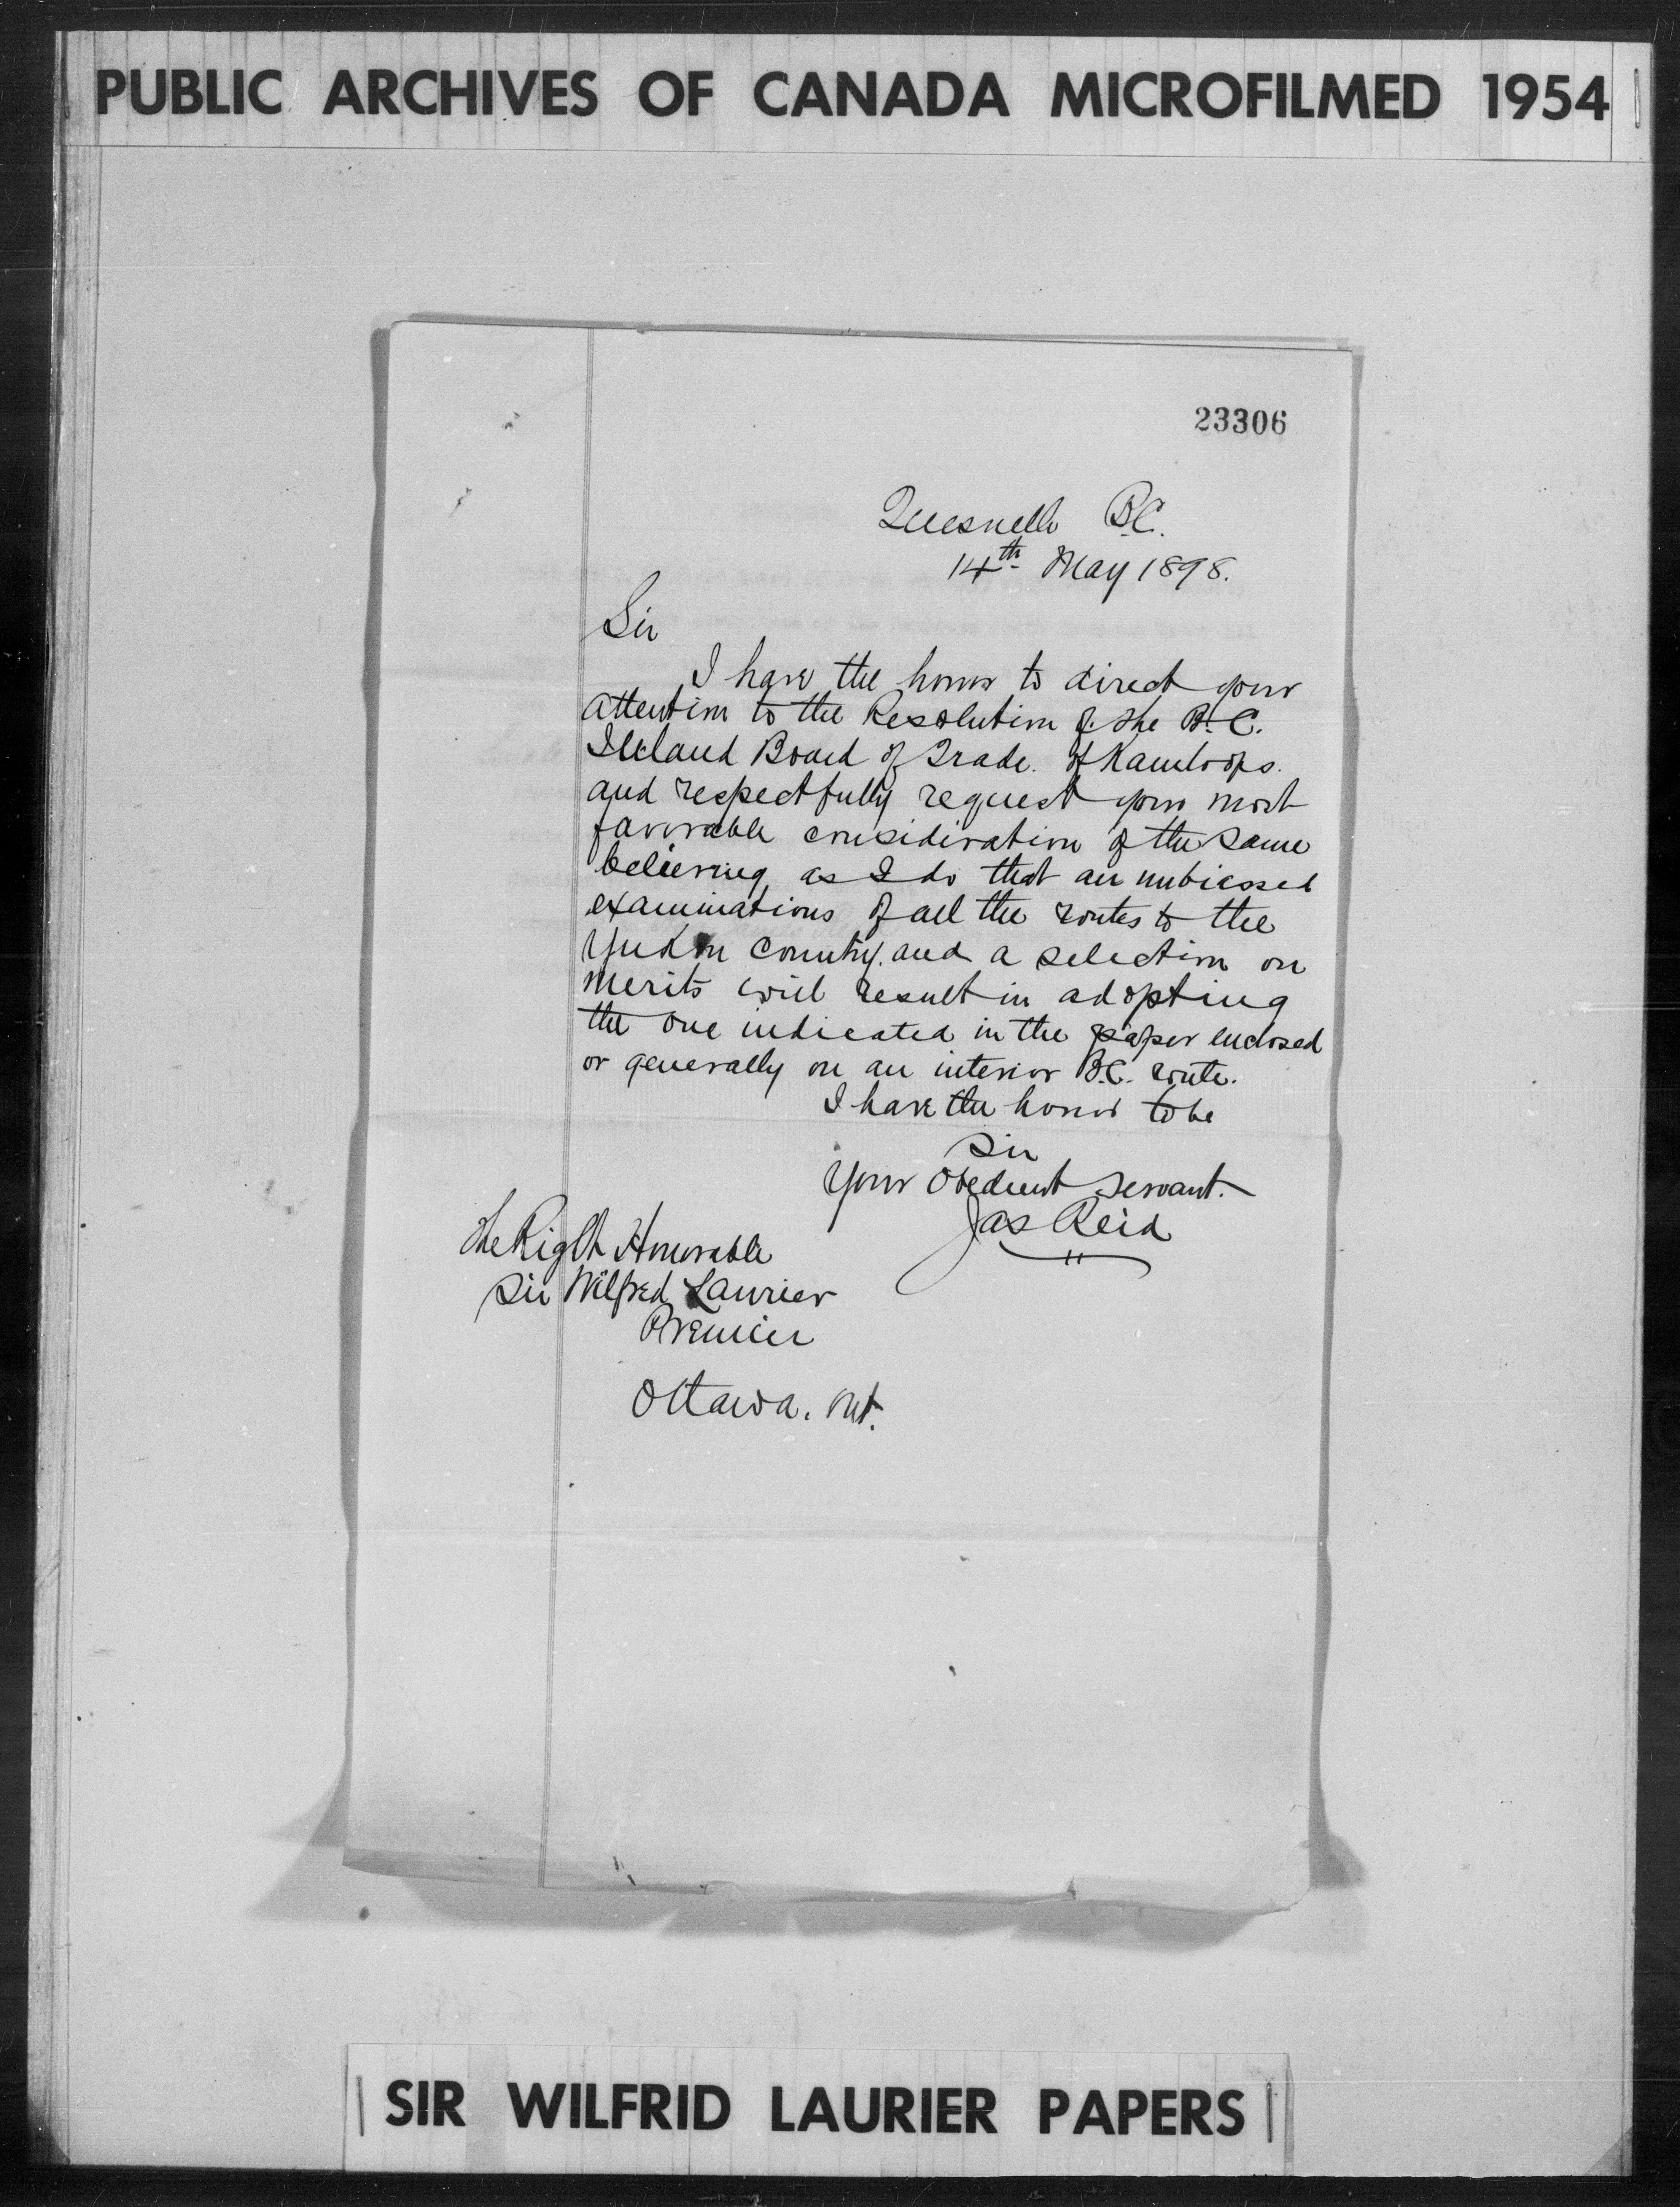 PUBLIC ARCHIVES OF CANADA MICROFILMED 1954
23306
Quesnelle B.C.
14th May 1898.
Sir
I have the honor to direct your
attention to the Resolution of the B.C.
Inland Board of Trade. of Kamloops.
and respectfully request your most
favorable consideration of the same
believing as I do that an unbiassed
examinations of all the routes to the
Yukon Country. and a selection on
merits will result in adopting
the one indicated in the paper enclosed
or generally on an interior B.C. route.
I have the honor to be
Sir
Your Obedient Servant.
Jas Reid
The Right Honorable
Sir Wilfred Laurier
Premier
Ottawa. Ont.
SIR WILFRID LAURIER PAPERS